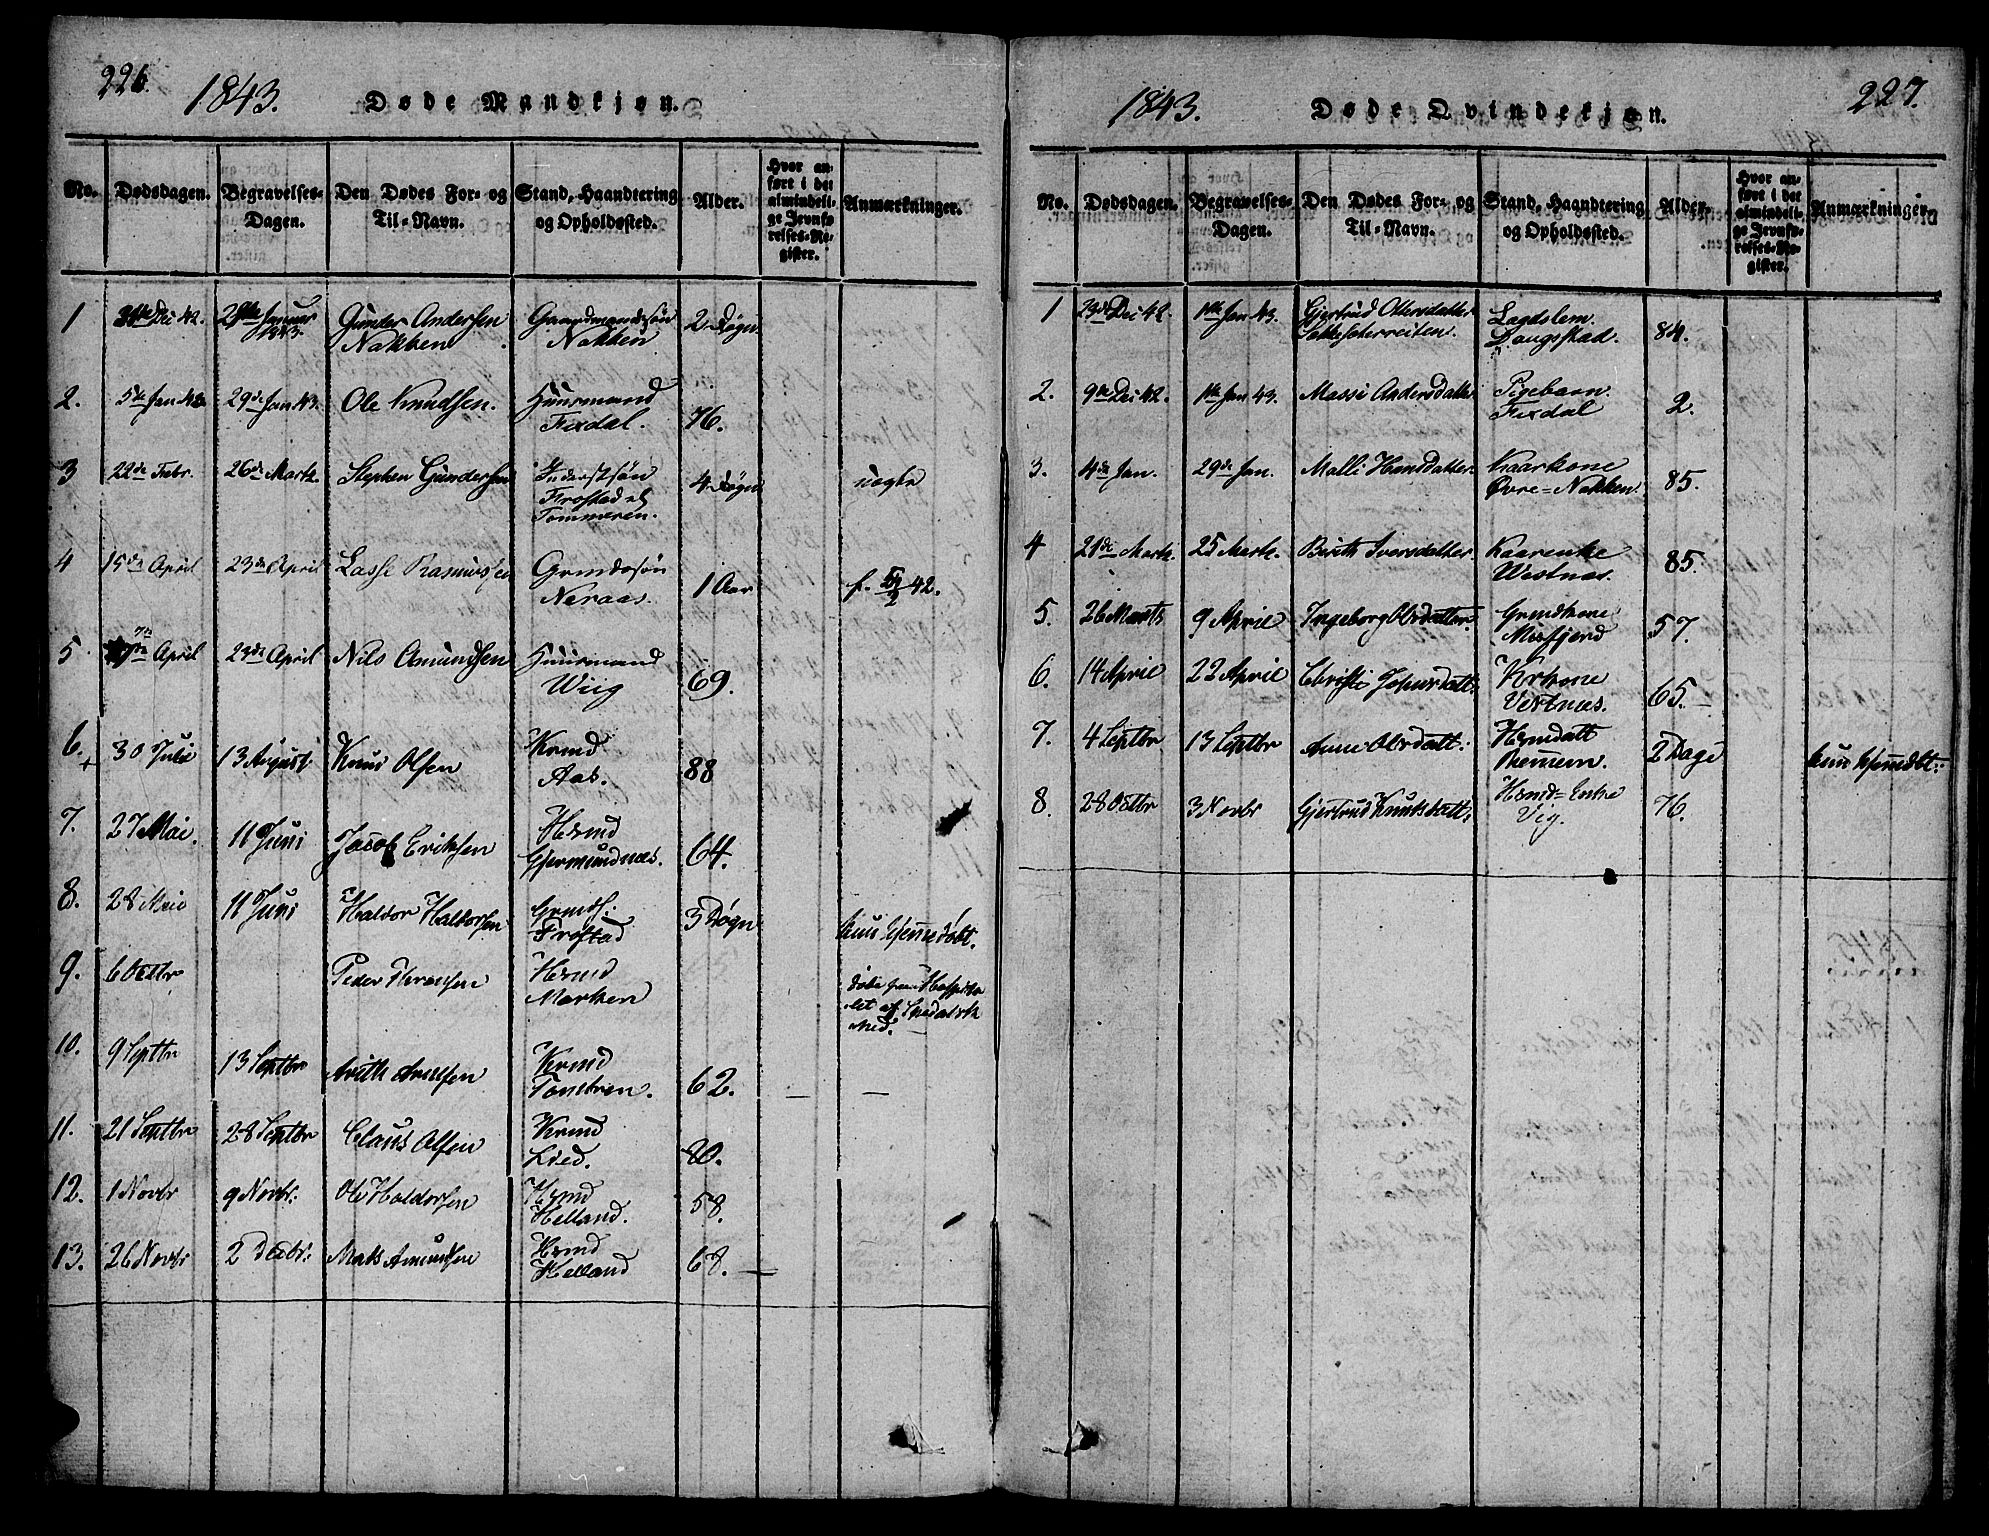 226.
1843.
Døde Mandkjøn.
No.
Dødsdagen.
Begravelses-
Dagen.
Den Dødes For- og
Til-Navn.
Stand, Haandtering
og Opholdssted.
Alder.
Hvor an-
ført i det
almindeli-
ge Jevnfø-
relses-Re-
gister.
Anmærkninger.
1
Dec 42.
Januar
1843.
Gunder Andersen
Nakken
Gaardmandssøn
Nakken
2 Døgn
2.
5te Jan 43.
29de Jan 43.
Ole Knudsen.
Huusmand
Fixdal.
76.
3
22de Febr.
26de Marts.
Stephen Gundersen
Inderstsøn
Frostad
Tommeren.
4 Døgn
uægte
4
15de April
23de April
Lasse Rasmussen
Grmdssøn
Neraas.
1 Aar
f. 42.
5
April
23de April
Nils Amundsen
Huusmand
Wiig
69.
6.
+
30 Julii
13 August
Knud Olsen
Krmd
Aas.
88
7.
27 Mai.
11 Juni
Jacob Eriksen
Hsmd
Gjermundnæs.
64.
8.
28 Mai
11 Juni
Haldor Haldorsen
Grmds:
Frostad
3 Døgn
kun hjemmedøbt.
9.
6 Octbr
Peder Iversen
Hsmd
Marken
døde paa Hospita
let af Spedalsk
hed.
10.
9 Septbr
13 Septbr
Arnesen
Krmd
Tomtren.
62.
11.
21 Septbr
28 Septbr
Claus Olsen
Krmd
Lied.
80.
12.
1 Novbr
9 Novbr:
Ole Haldorsen
Hsmd
Helland.
58.
13.
26 Novbr
2 Decbr:
Mats Amundsen
Hsmd
Helland
68.
227.
1843.
Døde Qvindekjøn.
No.
Dødsdagen.
Begravelses-
Dagen.
Den Dødes For- og
Til-Navn.
Stand, Haandtering
og Opholdssted.
Alder.
Hvor an-
ført i det
almindeli-
ge Jevnfø-
relses-Re-
gister.
Anmærkninger.
1
23de Dec 42.
1te Jan 43.
Gjertrud Olersdatter
Lagdslem.
Daugstad.
84.
2.
9de Dec 42.
1te Jan 43.
Massi Andersdatter
Pigebarn.
Fixdal
2.
3.
4de Jan.
29de Jan.
Malli Hansdatter
Kaarkone
Øvre-Nakken.
85.
4
21de Marts.
25 Marts.
Brith Iversdatter
Kaarenke
Westnæs.
85.
5.
26 Marts
9 April
Ingeborg Olsdatter.
Grmdkone
Misfjord
57.
6.
14 April
22 April
Christi Johnsdatt:
Krkone
Vestnæs.
65.
7.
4 Septbr
13 Septbr
Anne Olsdatt:
Hsmdatt
Remem.
2 Dage
kun hjemmedøbt:
8.
28 Octbr
3 Novbr
Gjertrud Knudsdatt:
Hsmd-Enke
Vig.
76.